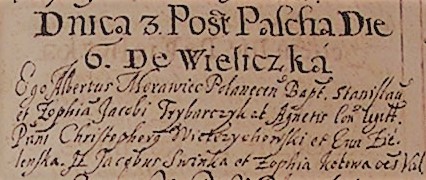 Dnica 3. Post Pascha Die
6. De Wieliczká
Ego Albertus Morawiec Polanecen Bapt. Stanislau
et Zophia Jacobi Trybarczyk et Agnetis Con legitt.
Prni Christophorg Wierzychowski et Ewa Zie-
lenska. It Jacobus Swinka et Zophia Kotowa oēs Wal